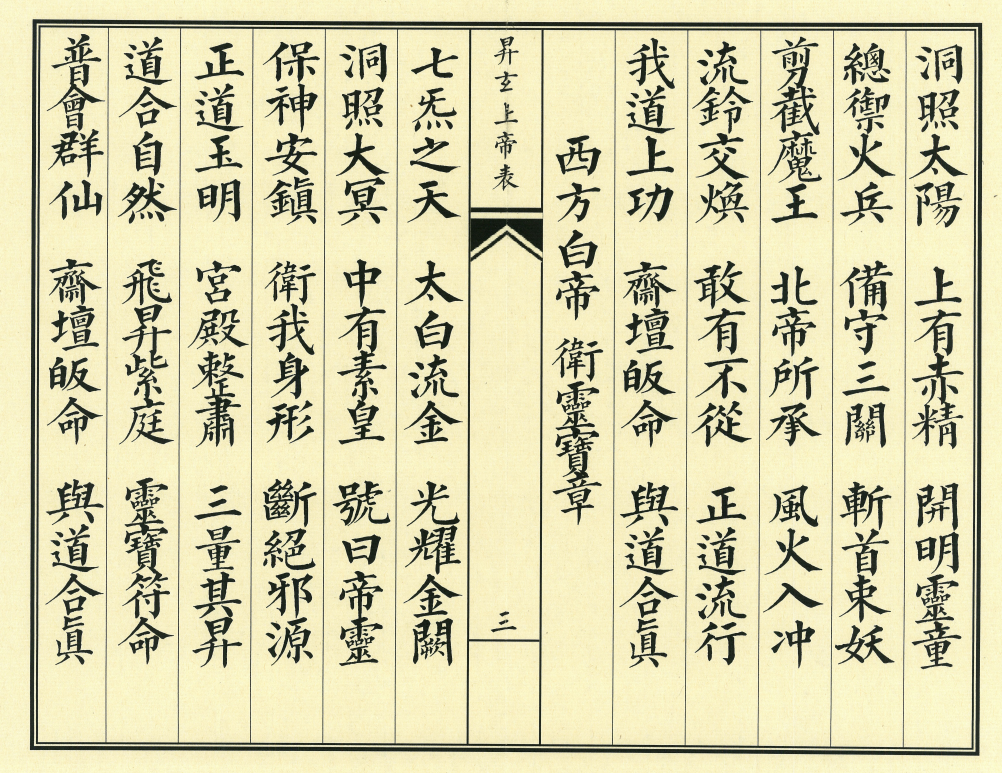 洞照太陽 上有赤精 開明靈童
總禦火兵 備守三關 斬首束妖
剪截魔王 北帝所承 風火入冲
流鈴交煥 敢有不從 正道流行
我道上功 齋壇皈命 與道合眞
西方白帝 衛靈寶章
昇玄上帝表
三
七炁之天 太白流金 光耀金闕
洞照大冥 中有素皇 號曰帝靈
保神安鎭 衛我身形 斷絕邪源
正道玉明 宮殿整肅 三量其昇
道合自然 飛昇紫庭 靈寶符命
普會群仙 齋壇皈命 與道合眞